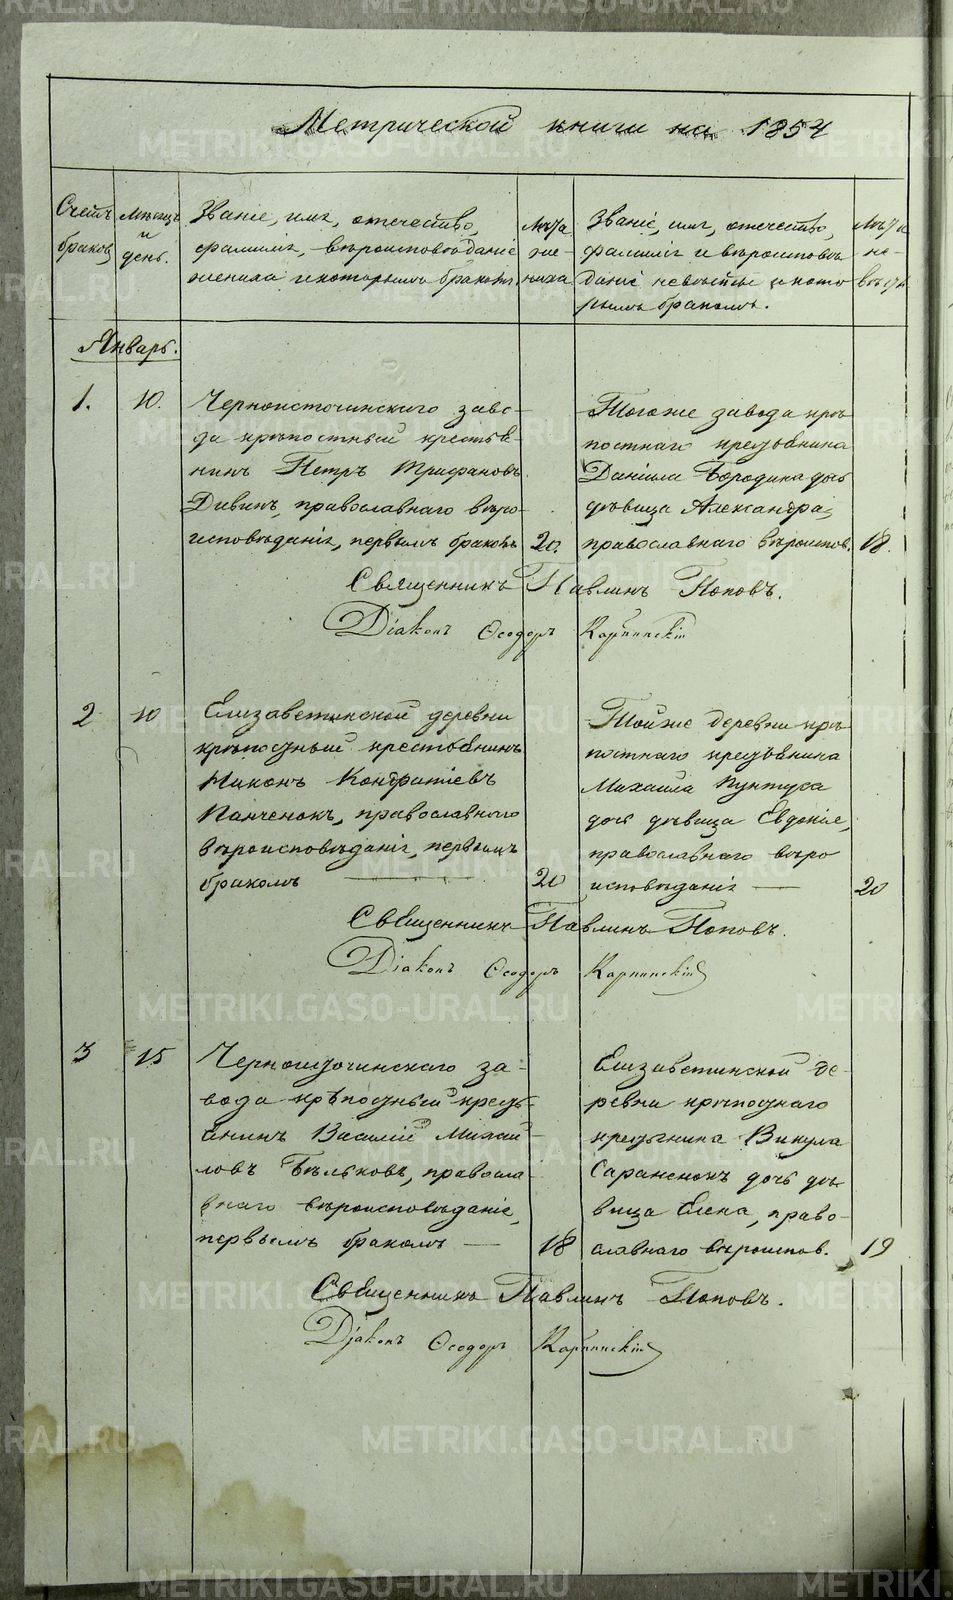 Метрической книги на 1854
Счетъ браков
Мѣсяцъ и день.
Званіе, имя, отечество,
фамилія, вѣроисповѣданіе
жениха и которымъ бракомъ.
Лѣта
же-
ниха
Званіе, имя, отечество,
фамилія и вѣроисповѣ
даніе невѣсты и кото
рымъ бракомъ.
Лѣта
не-
вѣсты
Январь.
1. 10.
Черноисточинскаго заво-
да крѣпостный крестья-
нинъ Петръ Трифановъ
Дивинъ, православнаго вѣро-
исповѣданія, первымъ бракомъ 20.
Тогоже завода крѣ
постнаго крестьянина
Даніила Бородина дочь
дѣвица Александра,
православнаго вѣроиспов. 18.
Священникъ Павлинъ Поповъ.
Діаконъ Ѳеодоръ Карпинскій
2 10
Елизаветинской деревни
крѣпостный крестьянинъ
Никонъ Кондратіевъ
Панченокъ, православнаго
вѣроисповѣданія, первымъ
бракомъ — 20
Тойже деревни крѣ
постнаго крестьянина
Михаила Пунтуса
дочь дѣвица Евдокія,
православнаго вѣро
исповѣданія — 20
Священникъ Павлинъ Поповъ.
Діаконъ Ѳеодоръ Карпинскій
3 15
Черноисточинскаго за-
вода крѣпостный кресть-
янинъ Василій Михаи-
ловъ Бѣльковъ, правосла
внаго вѣроисповѣданіе,
первымъ бракомъ — 18
Елизаветинской де-
ревни крѣпостнаго
крестьянина Викула
Саранчокъ дочь дѣ-
вица Елена, право-
славнаго вѣроиспов. 19
Священникъ Павлинъ Поповъ.
Діаконъ Ѳеодоръ Карпинскій
METRIKI.GASO-URAL.RU